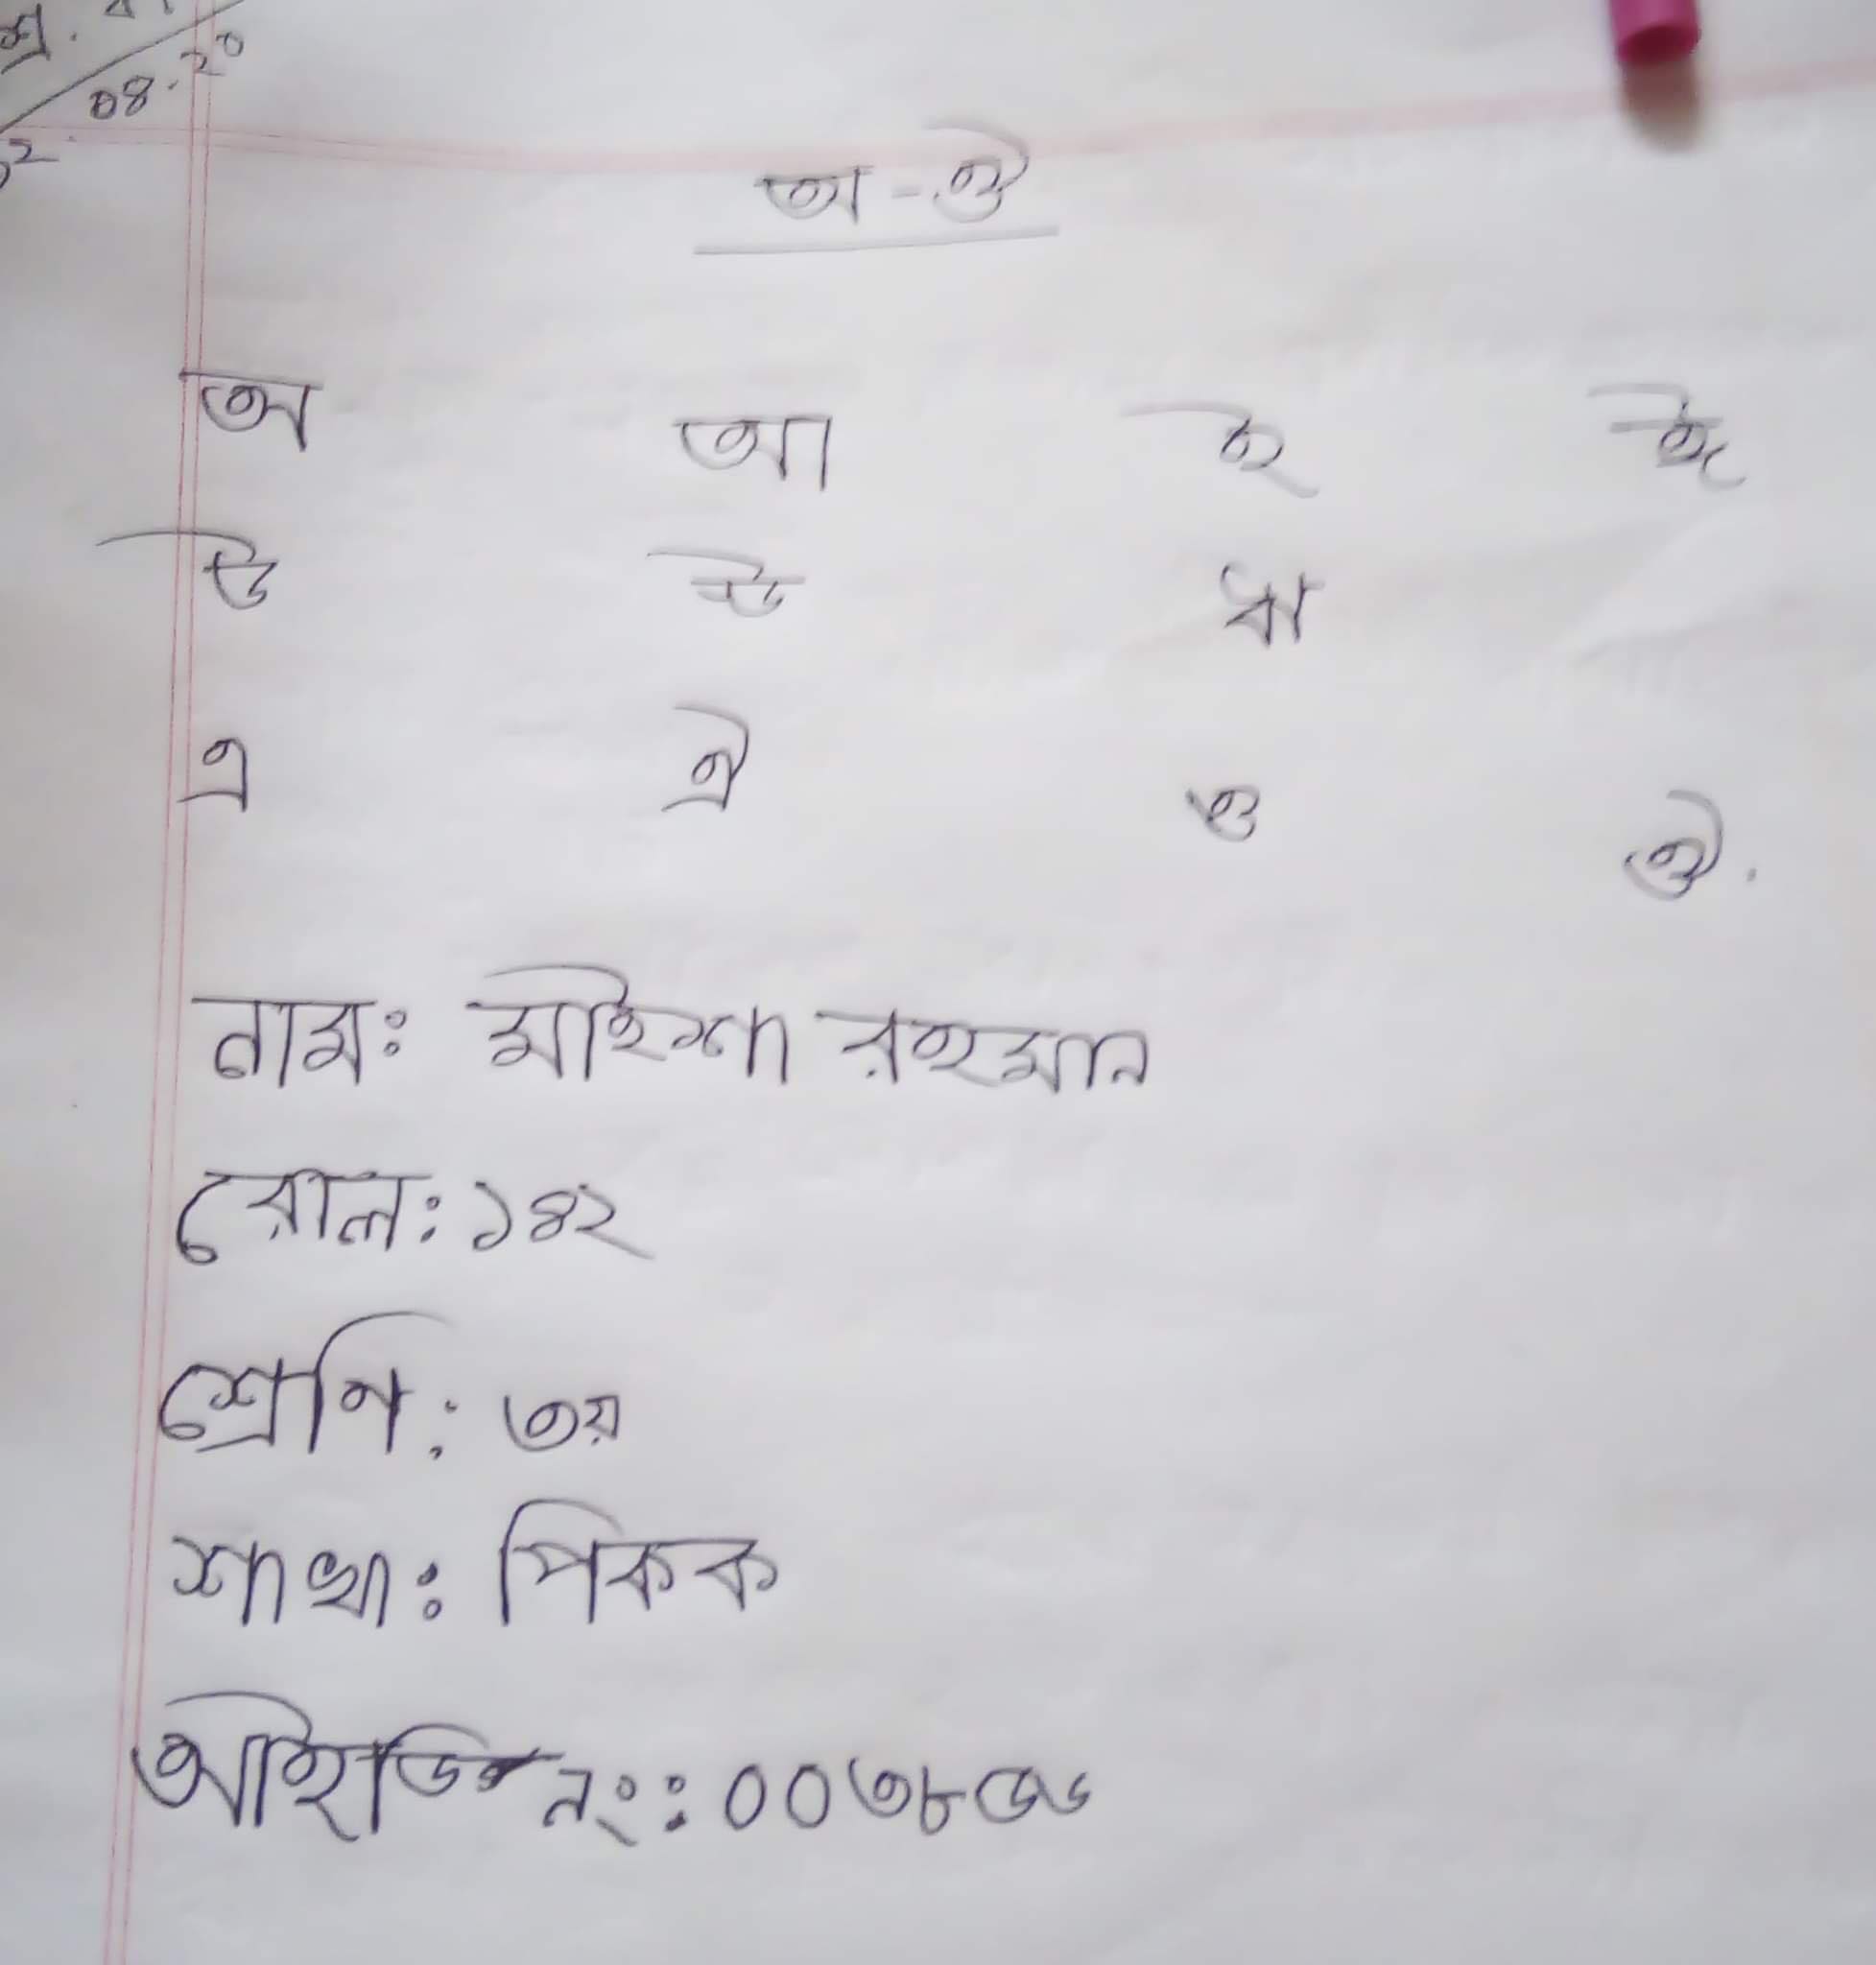 ০৪.২০
অ-ঔ
অ আ ই ঈ
উ ঊ ঋ
এ ঐ ও ঔ.
নামঃ মাইশা রহমান
রোল: ১৪২
শ্রেণি: ৩য়
শাখা: পিকক
আইডি নং: ০০৩৮৫৬